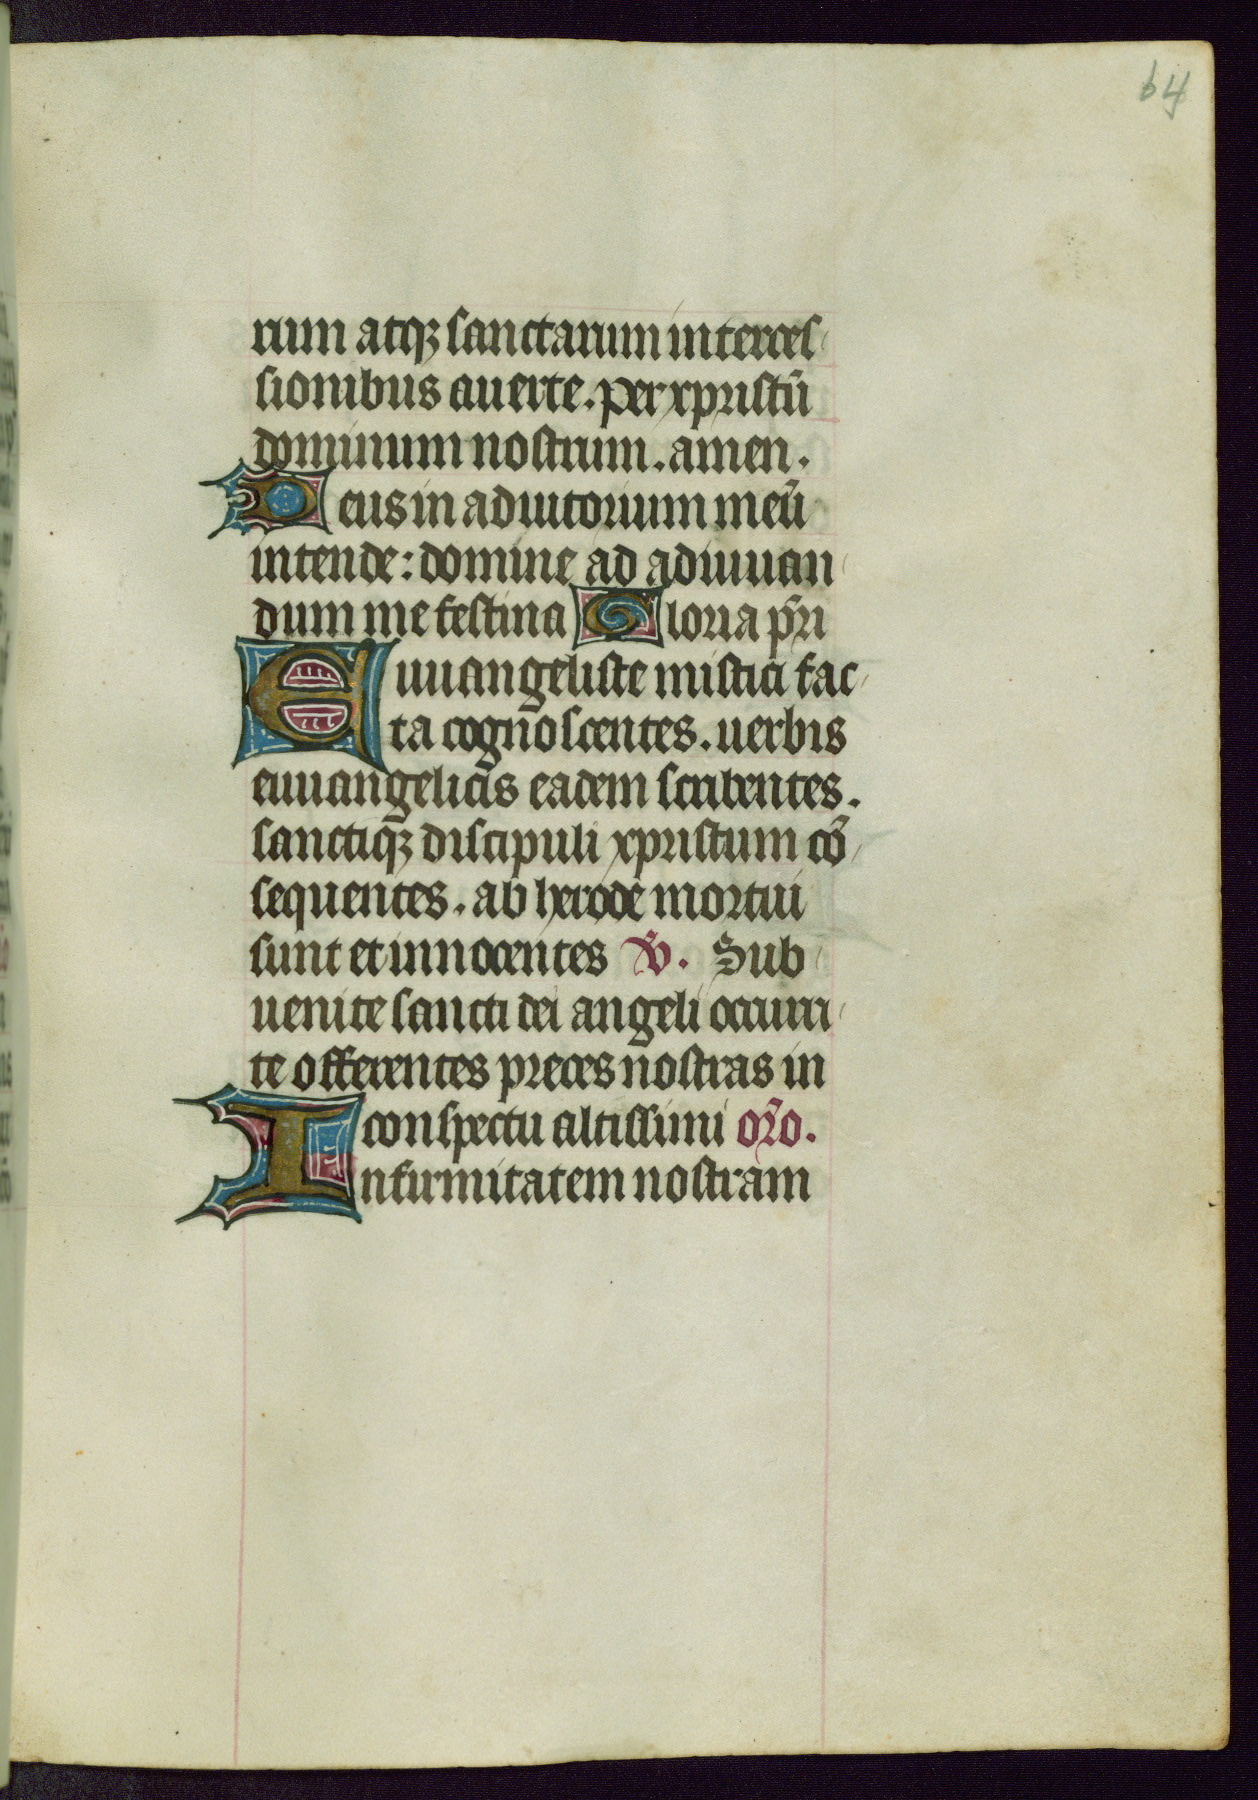 64
rium atqꝫ sanctarum interces
sionibus auerte. per xpristū
dominum nostrum. amen.
Deus in adiutorium meū
intende: domine ad adiuuan
dum me festina Gloria pr̄i
Euuangeliste mistici fac
ta cogn̄oscentes. uerbis
euuangelicis eadem scribentes.
sanctiqꝫ discipuli xpristum cō
sequentes. ab herode mortui
sunt et innocentes ℣. Sub
uenite sancti dei angeli occurri
te offerentes preces nostras in
conspectu altissimi or̄o.
Infirmitatem nostram